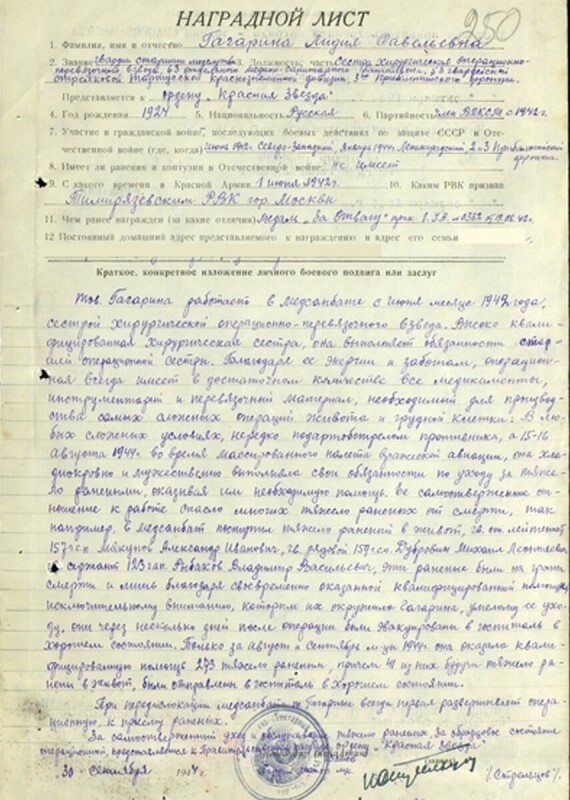 250
НАГРАДНОЙ ЛИСТ
1. Фамилия, имя и отчество Гагарина Лидия Савельевна
2. Звание Гвардии старшина медслужбы 3. Должность, часть Сестра хирургическая операционно-
перевязочного взвода, 63 отдельного медико-санитарного батальона, 53 гвардейской
стрелковой Тартуской Краснознаменной дивизии, 3го Прибалтийского фронта.
Представляется к ордену „Красная Звезда"
4. Год рождения 1924 5. Национальность Русская 6. Партийность Член ВЛКСМ с 1942г.
7. Участие в гражданской войне, последующих боевых действиях по защите СССР и Оте-
чественной войне (где, когда) Июнь 1942. Северо-Западный, Январь 1944. Ленинградский, 2 и 3 Прибалтийский
фронта.
8. Имеет ли ранения и контузии в Отечественной войне Не имеет
9. С какого времени в Красной Армии 1 июня 1942г. 10. Каким РВК призван
Тимирязевским РВК гор. Москвы
11. Чем ранее награжден (за какие отличия) Медаль „За Отвагу" прик. 1.У.А.
12 Постоянный домашний адрес представляемого к награждению и адрес его семьи
Краткое, конкретное изложение личного боевого подвига или заслуг
Тов. Гагарина работает в медсанбате с июня месяца 1942 года,
сестрой хирургической операционно-перевязочного взвода. Высоко квали-
фицированная хирургическая сестра, она выполняет обязанности стар-
шей операционной сестры. Благодаря ее энергии и заботам, операцион-
ная всегда имеет в достаточном количестве все медикаменты,
инструментарий и перевязочный материал, необходимый для производ-
ства самых сложных операций живота и грудной клетки. В лю-
бых сложных условиях, нередко под артобстрелом противника, а 15-16
августа 1944г. во время массированного налета вражеской авиации, она хла-
днокровно и мужественно выполняла свои обязанности по уходу за тяже-
ло ранеными, оказывая им необходимую помощь. Ее самоотверженное от-
ношение к работе спасло многих тяжело раненых от смерти, так
например, в медсанбат поступили тяжело раненой в живот, гв. ст. лейтенант
157 гсп Александр Иванович, гв. рядовой 159 гсп. Дубровин Михаил Леонтьевич
и сержант 123 гап. Анбаков Владимир Васильевич, эти раненые были на грани
смерти и лишь благодаря своевременно оказанной квалифицированной помощи,
исключительному вниманию, которым их окружила Гагарина, умелому ее ухо-
ду, они через несколько дней после операции были эвакуированы в госпиталь в
хорошем состоянии. Только за август и сентябрь м-цы 1944г. она оказала квали-
фицированную помощь 273 тяжело раненым, причем 41 из них будучи тяжело ра-
нены в живот, были отправлены в госпиталь в хорошем состоянии.
При передислокации медсанбата, тов. Гагарина всегда первая развертывает опера-
ционную, к приему раненых.
За самоотверженный уход и обслуживание тяжело раненых. За образцовое состояние
операционной, представляется к Правительственной награде ордену „Красная Звезда"
30 сентября 1944 г.
/Стрельцов/